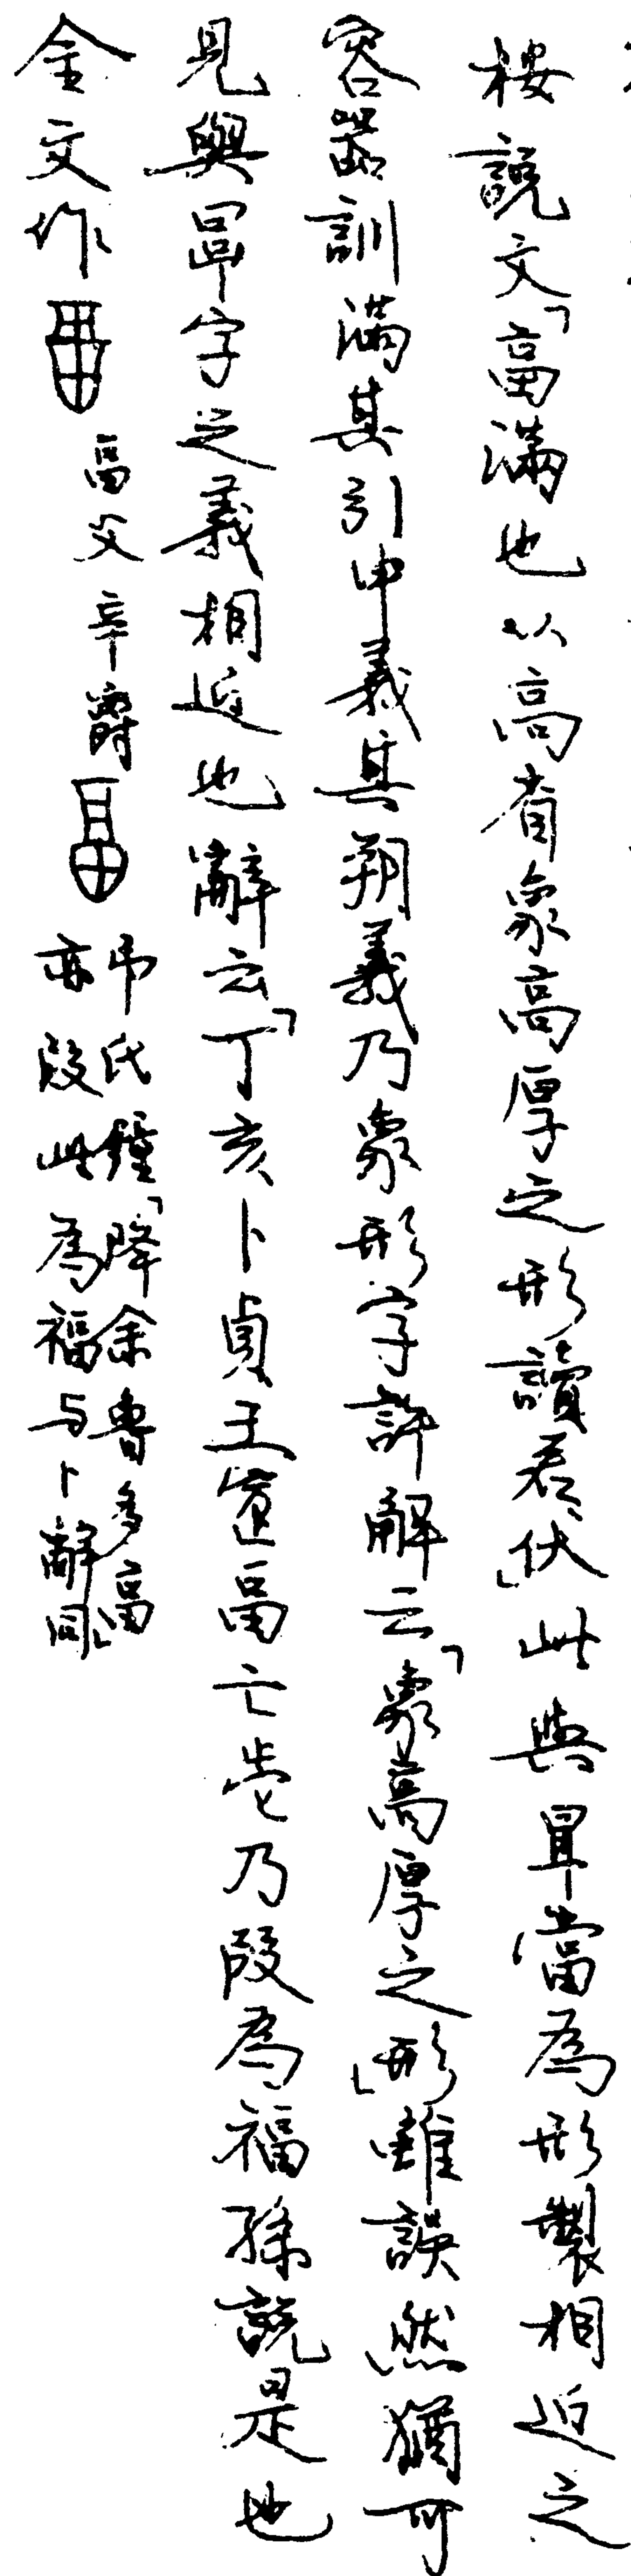 桉說文「畗滿也从高省象高厚之形讀若伏」此與𠱠當為形製相近之
容器訓滿其引申義其朔義乃象形字許解云「象高厚之形」雖誤然猶可
見與𠱠字之義相近也辭云「丁亥卜貞王賓畗亡𡆥乃叚為福孫說是也
金文作 畗父辛爵 弔氏鐘「降余魯多畗」亦叚此為福与卜辭同